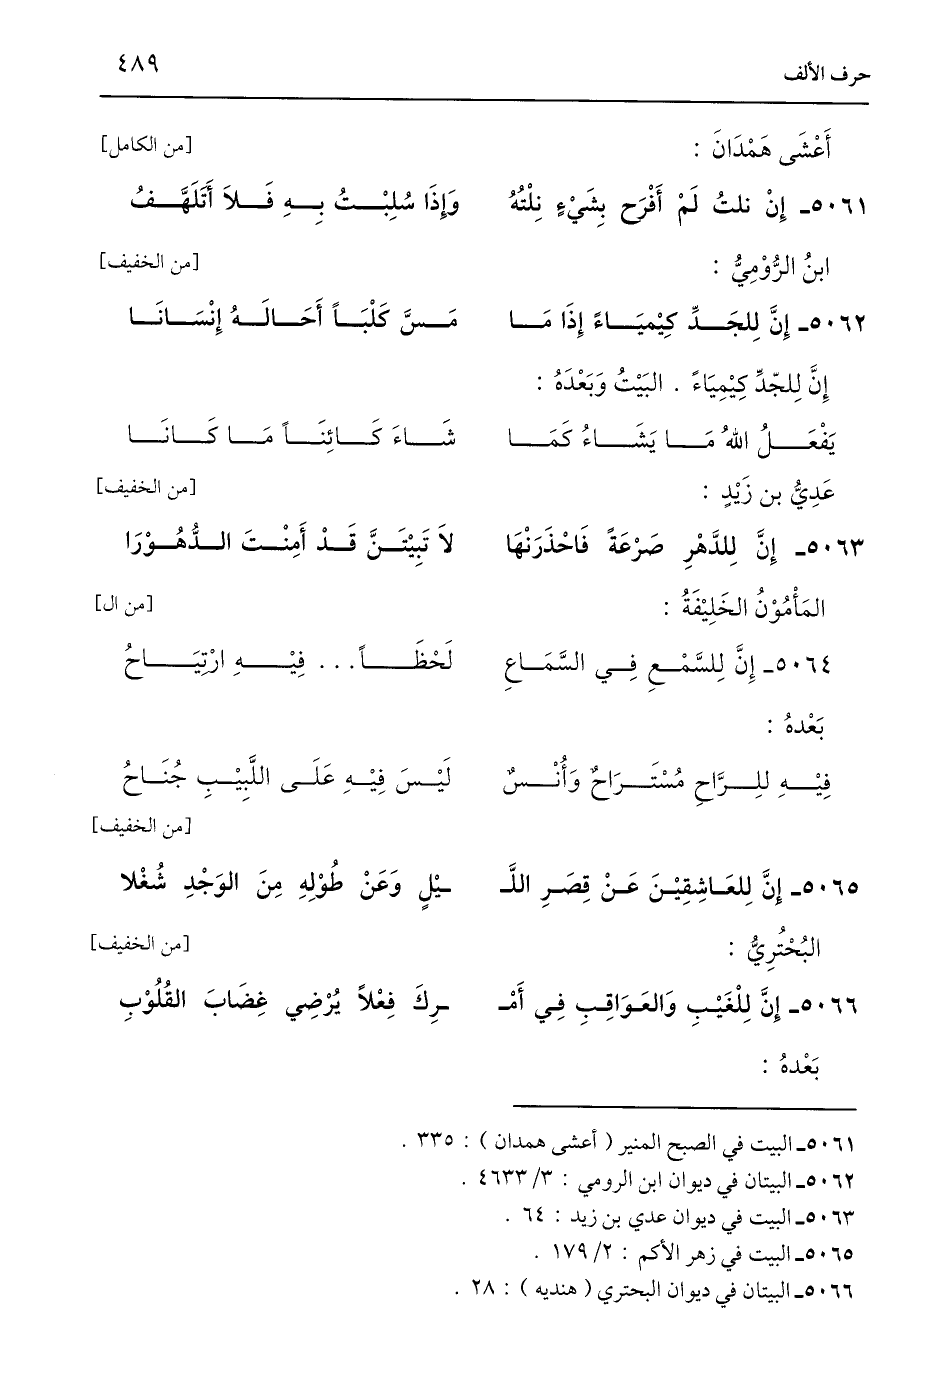 حرف الألف ٤٨٩
أَعْشَى هَمْدَانَ : [من الكامل]
٥٠٦١ـ إِنْ نلتُ لَمْ أَفْرَح بِشَيْءٍ نِلْتُهُ وَإِذَا سُلِبْتُ بِهِ فَلاَ أَتَلَهَّفُ
ابنُ الرُّوْمِيُّ : [من الخفيف]
٥٠٦٢ـ إِنَّ لِلجَدِّ كِيْمِيَاءً إِذَا مَا مَسَّ كَلْبَاً أَحَالَهُ إِنْسَانَا
إِنَّ لِلجّدِّ كِيْمِيَاءً . البَيْتُ وَبَعْدَهُ :
يَفْعَلُ اللهُ مَا يَشَاءُ كَمَا شَاءَ كَائِنَاً مَا كَانَا
عَدِيُّ بن زَيْدٍ : [من الخفيف]
٥٠٦٣ـ إِنَّ لِلدَّهْرِ صَرْعَةً فَاحْذَرَنْهَا لاَ تَبِيْتَنَّ قَدْ أَمِنْتَ الدُّهُوْرَا
المَأْمُوْنُ الخَلِيْفَةُ : [من ال]
٥٠٦٤ـ إِنَّ لِلسَّمْعِ فِي السَّمَاعِ لَحْظَاً... فِيْهِ ارْتِيَاحُ
بَعْدهُ :
فِيْهِ لِلرَّاحِ مُسْتَرَاحٌ وَأُنْسٌ لَيْسَ فِيْهِ عَلَى اللَّبِيْبِ جُنَاحُ
[من الخفيف]
٥٠٦٥ـ إِنَّ لِلعَاشِقِيْنَ عَنْ قِصَرِ اللَّـ ـيْلِ وَعَنْ طُوْلِهِ مِنَ الوَجْدِ شُغْلا
البُحْتُرِيُّ : [من الخفيف]
٥٠٦٦ـ إِنَّ لِلْغَيْبِ وَالعَوَاقِبِ فِي أَمْـ ـرِكَ فِعْلاً يُرْضِي غِضَابَ القُلُوْبِ
بَعْدهُ :
٥٠٦١ـ البيت في الصبح المنير ( أعشى همدان ) : ٣٣٥ .
٥٠٦٢ـ البيتان في ديوان ابن الرومي : ٣/ ٤٦٣٣ .
٥٠٦٣ـ البيت في ديوان عدي بن زيد : ٦٤ .
٥٠٦٥ـ البيت في زهر الأكم : ٢/ ١٧٩ .
٥٠٦٦ـ البيتان في ديوان البحتري ( هنديه ) : ٢٨ .